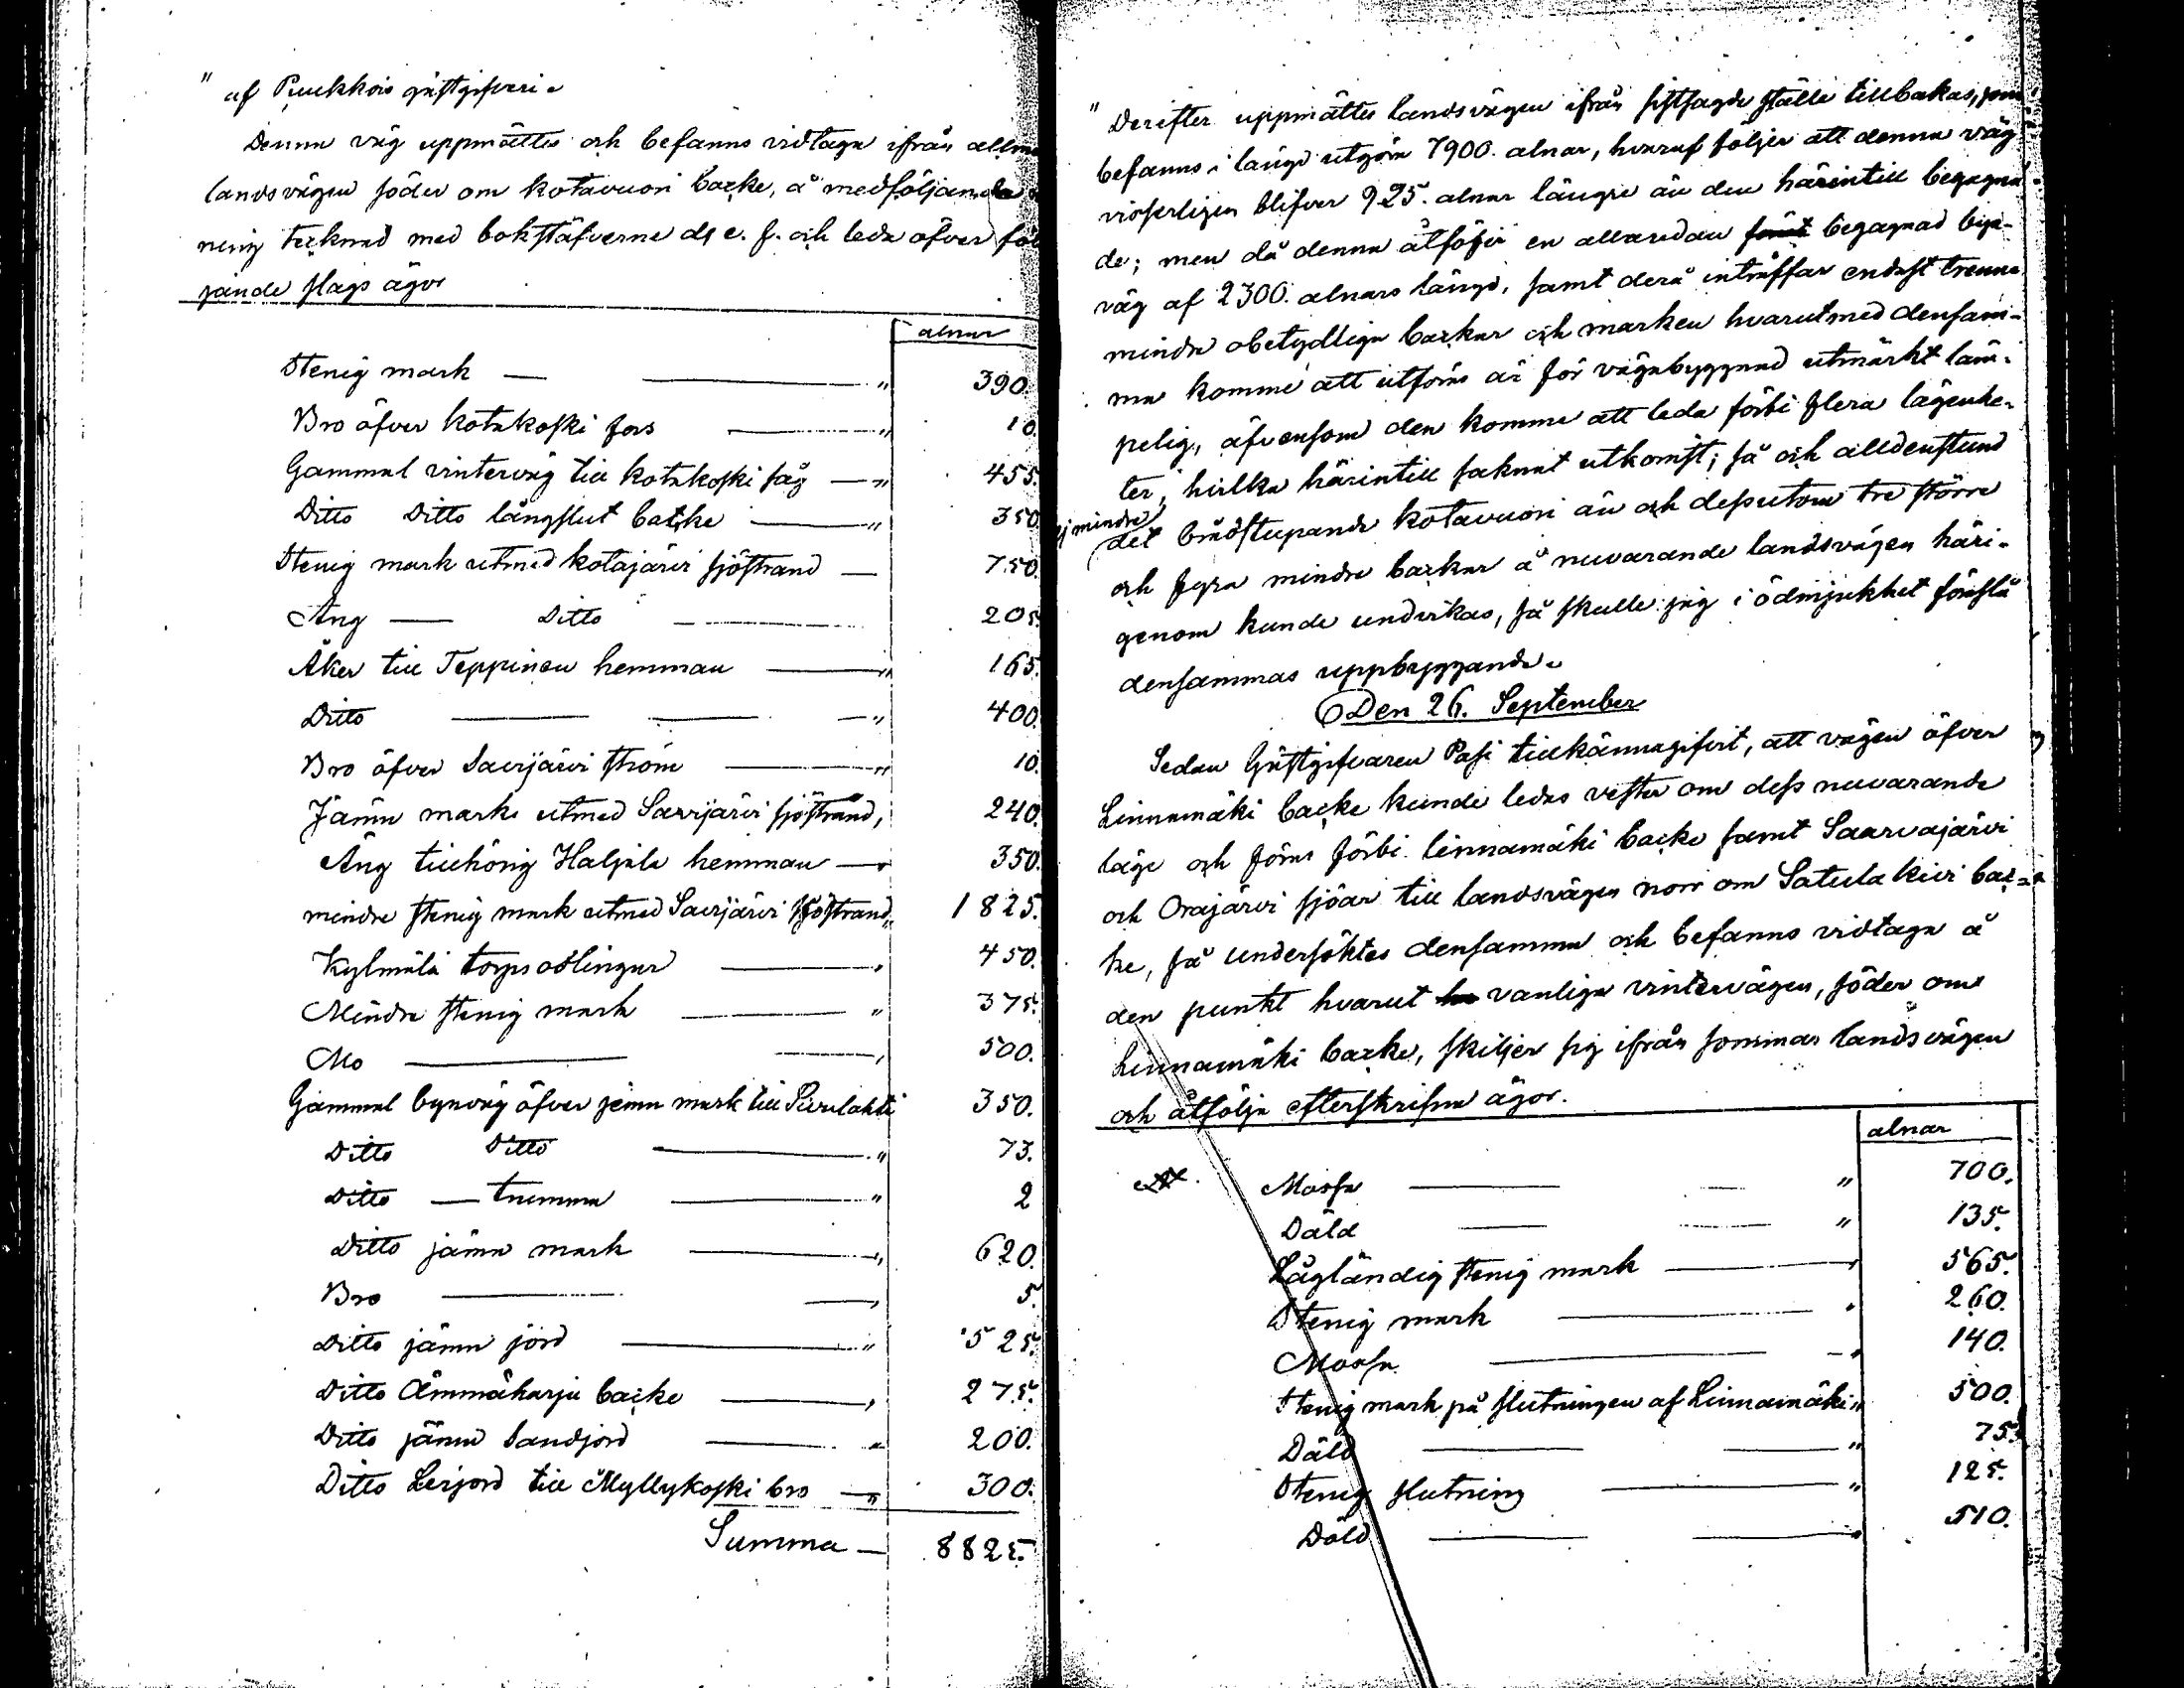 " af Puukkois gästgifveri.
Denna väg uppmättes och befanns vidtaga ifrån allmä
landsvägen söder om Kotavuori backe, å medföljande
ning tecknad med bokstäfverne d, e. f. och leda öfver föl
jande slags ägor
alnar
Stenig mark — — " 390.
Bro öfver Kotakoski fors — " 10.
Gammal vinterväg till Kotakoski såg — " 455.
Ditto Ditto långslut backe — " 350.
Stenig mark utmed Kotajärvi sjöstrand — 750.
Äng — Ditto — 205.
Åker till Teppinen hemman — " 165.
Ditto — — — " 400.
Bro öfver Saarjärvi ström — " 10.
Jämn mark utmed Saarjärvi sjöstrand, 240.
Äng tillhörig Haljala hemman — 350.
mindre stenig mark utmed Saarjärvi sjöstrand " 1825.
Kylmälä torpsodlingar — " 450.
Mindre stenig mark — " 375.
Mo — — " 500.
Gammal byaväg öfver jemn mark till Sivulahti 350.
Ditto Ditto — " 73.
Ditto — trumma — " 2
Ditto jämn mark — " 620.
Bro — — " 5.
Ditto jämn jord — " 525.
Ditto Ämmäharju backe — " 275.
Ditto jämn Sandjord — " 200.
Ditto Lerjord till Myllykoski bro — " 300.
Summa — 8825.
" Derefter uppmättes landsvägen ifrån sistsagde ställe tillbakas, som
befanns i längd utgöra 7900. alnar, hvaraf följer att denna väg
visserligen blifver 925. alnar längre än den härintill begagna-
de; men då denna åtföljer en allaredan förut begagnad bya-
väg af 2300. alnars längd, samt derå inträffar endast trenne
mindre obetydliga backar och marken hvarutmed densam-
ma komme att utföras är för vägabyggnad utmärkt läm-
pelig, äfvensom den komme att leda förbi flera lägenhe-
ter, hvilka härintill saknat utkomst; så och alldenstund
ej mindre
det brådstupande Kotavuori än och dessutom tre större
och fyra mindre backar å nuvarande landsvägen häri-
genom kunde undvikas, så skulle jag i ödmjukhet föreslå
densammas uppbyggande.
Den 26. September
Sedan Gästgifvaren Pasi tillkännagifvit, att vägen öfver
Linnamäki backe kunde ledas vester om dess nuvarande
läge och föras förbi Linnamäki backe samt Saarvajärvi
och Orajärvi sjöar till landsvägen norr om Satula kivi bac-
ke, så undersöktes densamma och befanns vidtaga å
den punkt hvarut vanliga vintervägen, söder om
Linnamäki backe, skiljer sig ifrån sommar landsvägen
och åtfölja efterskrifne ägor.
alnar
Mossa — — " 700.
Däld — — " 135.
Lågländig stenig mark — " 565.
Stenig mark — " 260.
Mossa — — " 140.
Stenig mark på slutningen af Linnamäki " 500.
Däld — — " 75.
Stenig slutning — " 125.
Däld — — " 510.